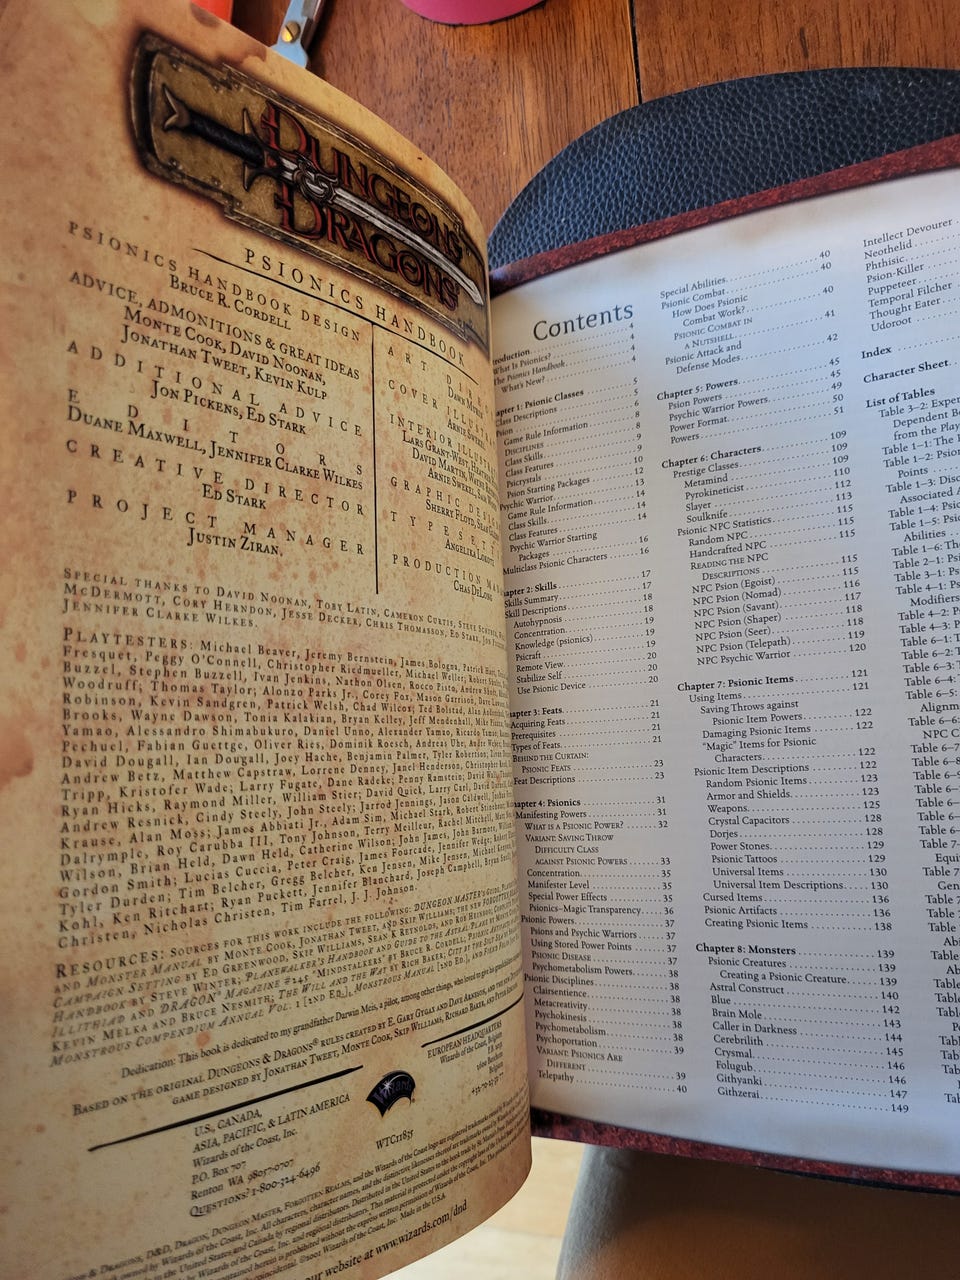 DUNGEONS
DRAGONS
PSIONICS HANDBOOK
PSIONICS HANDBOOK DESIGN
BRUCE R. CORDELL
ADVICE, ADMONITIONS & GREAT IDEAS
MONTE COOK, DAVID NOONAN,
JONATHAN TWEET, KEVIN KULP
ADDITIONAL ADVICE
JON PICKENS, ED STARK
EDITORS
DUANE MAXWELL, JENNIFER CLARKE WILKES
CREATIVE DIRECTOR
ED STARK
PROJECT MANAGER
JUSTIN ZIRAN
ART
DAWN
COVER
ARNIE
INTERIOR
LARS GRANT-WEST,
DAVID MARTIN, WAYNE
ARNIE SWEKEL,
GRAPHIC
SHERRY FLOYD, SEAN
ANGELIKA
PRODUCTION
CHAS DELONG
SPECIAL THANKS TO DAVID NOONAN, TOBY LATIN, CAMERON CURTIS, STEVE
MCDERMOTT, CORY HERNDON, JESSE DECKER, CHRIS THOMASSON, ED STARK,
JENNIFER CLARKE WILKES.
PLAYTESTERS: Michael Beaver, Jeremy Bernstein, James Bologna, Patrick
Fresquet, Peggy O'Connell, Christopher Riedmueller, Michael Weller; Robert
Buzzel, Stephen Buzzell, Ivan Jenkins, Nathon Olsen, Rocco Pisto, Andrew
Woodruff, Thomas Taylor; Alonzo Parks Jr., Corey Fox, Mason Garrison, Dave
Robinson, Kevin Sandgren, Patrick Welsh, Chad Wilcox; Ted Bolstad, Alan
Brooks, Wayne Dawson, Tonia Kalakian, Bryan Kelley, Jeff Mendenhall, Mike
Yamao, Alessandro Shimabukuro, Daniel Unno, Alexander Yamao, Ricardo
Pechuel, Fabian Guettge, Oliver Ries, Dominik Roesch, Andreas Uhr, Andre
David Dougall, Ian Dougall, Joey Hache, Benjamin Palmer, Tyler Robertson;
Andrew Betz, Matthew Capstraw, Lorrene Denney, Janel Henderson, Christopher
Tripp, Kristofer Wade; Larry Fugate, Dane Radeke; Penny Ramstein; David
Ryan Hicks, Raymond Miller, William Stier; David Quick, Larry Carl, David
Andrew Resnick, Cindy Steely, John Steely; Jarrod Jennings, Jason Caldwell,
Krause, Alan Moss; James Abbiati Jr., Adam Sim, Michael Stark, Robert
Dalrymple, Roy Carubba III, Tony Johnson, Terry Meilleur, Rachel Mitchell,
Wilson, Brian Held, Dawn Held, Catherine Wilson; John James, John Barmore,
Gordon Smith; Lucias Cuccia, Peter Craig, James Fourcade, Jennifer Wedge,
Tyler Durden; Tim Belcher, Gregg Belcher, Ken Jensen, Mike Jensen, Michael
Kohl, Ken Ritchart; Ryan Puckett, Jennifer Blanchard, Joseph Campbell, Bryan
Christen, Nicholas Christen, Tim Farrel, J. J. Johnson.
RESOURCES: SOURCES FOR THIS WORK INCLUDE THE FOLLOWING: DUNGEON MASTER'S GUIDE,
AND MONSTER MANUAL BY MONTE COOK, JONATHAN TWEET, AND SKIP WILLIAMS; THE NEW FORGOTTEN
CAMPAIGN SETTING BY ED GREENWOOD, SKIP WILLIAMS, SEAN K REYNOLDS, AND ROB HEINSOO;
HANDBOOK BY STEVE WINTER; PLANEWALKER'S HANDBOOK AND GUIDE TO THE ASTRAL PLANE BY MONTE COOK
ILLITHIAD AND DRAGON MAGAZINE #145 "MINDSTALKERS" BY BRUCE R. CORDELL; PSIONIC
KEVIN MELKA AND BRUCE NESMITH; THE WILL AND THE WAY BY RICH BAKER; CITY
MONSTROUS COMPENDIUM ANNUAL VOL. 1 [2ND ED.], MONSTROUS MANUAL [2ND ED.], AND FIEND
Dedication: This book is dedicated to my grandfather Darwin Meis, a pilot, among other things, who loved to give his grandchildren
BASED ON THE ORIGINAL DUNGEONS & DRAGONS® RULES CREATED BY E. GARY GYGAX AND DAVE ARNESON, AND THE
GAME DESIGNED BY JONATHAN TWEET, MONTE COOK, SKIP WILLIAMS, RICHARD BAKER, AND PETER
U.S., CANADA,
ASIA, PACIFIC, & LATIN AMERICA
Wizards of the Coast, Inc.
P.O. Box 707
Renton WA 98057-0707
QUESTIONS? 1-800-324-6496
Wizards
WTC11835
EUROPEAN HEADQUARTERS
Wizards of the Coast, Belgium
Belgium
©2001 Wizards of the Coast, Inc. Made in the U.S.A.
our website at www.wizards.com/dnd
Contents
roduction 4
What Is Psionics? 4
The Psionics Handbook 4
What's New? 4
apter 1: Psionic Classes 5
Class Descriptions 5
Psion 6
Game Rule Information 8
DISCIPLINES 8
Class Skills 9
Class Features 9
Psicrystals 10
Psion Starting Packages 12
Psychic Warrior 13
Game Rule Information 14
Class Skills 14
Class Features 14
Psychic Warrior Starting
Packages 16
Multiclass Psionic Characters 16
hapter 2: Skills 17
Skills Summary 17
Skill Descriptions 18
Autohypnosis 18
Concentration 19
Knowledge (psionics) 19
Psicraft 19
Remote View 20
Stabilize Self 20
Use Psionic Device 20
hapter 3: Feats 21
Acquiring Feats 21
Prerequisites 21
Types of Feats 21
BEHIND THE CURTAIN:
PSIONIC FEATS 23
Feat Descriptions 23
hapter 4: Psionics 31
Manifesting Powers 31
WHAT IS A PSIONIC POWER? 32
VARIANT: SAVING THROW
DIFFICULTY CLASS
AGAINST PSIONIC POWERS 33
Concentration 35
Manifester Level 35
Special Power Effects 35
Psionics–Magic Transparency 36
Psionic Powers 37
Psions and Psychic Warriors 37
Using Stored Power Points 37
PSIONIC DISEASE 37
Psychometabolism Powers 38
Psionic Disciplines 38
Clairsentience 38
Metacreativity 38
Psychokinesis 38
Psychometabolism 38
Psychoportation 38
VARIANT: PSIONICS ARE 39
DIFFERENT
Telepathy 39
40
Special Abilities 40
Psionic Combat 40
How Does Psionic
Combat Work? 40
PSIONIC COMBAT IN
A NUTSHELL 41
Psionic Attack and
Defense Modes 42
Chapter 5: Powers 45
Psion Powers 45
Psychic Warrior Powers 49
Power Format 50
Powers 51
Chapter 6: Characters 109
Prestige Classes 109
Metamind 109
Pyrokineticist 110
Slayer 112
Soulknife 113
Psionic NPC Statistics 115
Random NPC 115
Handcrafted NPC 115
READING THE NPC
DESCRIPTIONS 115
NPC Psion (Egoist) 115
NPC Psion (Nomad) 116
NPC Psion (Savant) 117
NPC Psion (Shaper) 118
NPC Psion (Seer) 118
NPC Psion (Telepath) 119
NPC Psychic Warrior 120
Chapter 7: Psionic Items 121
Using Items 121
Saving Throws against
Psionic Item Powers 122
Damaging Psionic Items 122
"Magic" Items for Psionic
Characters 122
Psionic Item Descriptions 122
Random Psionic Items 123
Armor and Shields 123
Weapons 125
Crystal Capacitors 128
Dorjes 128
Power Stones 129
Psionic Tattoos 129
Universal Items 130
Universal Item Descriptions 130
Cursed Items 136
Psionic Artifacts 136
Creating Psionic Items 138
Chapter 8: Monsters 139
Psionic Creatures 139
Creating a Psionic Creature 139
Astral Construct 140
Blue 142
Brain Mole 143
Caller in Darkness 144
Cerebrilith 145
Crysmal 146
Folugub 146
Githyanki 147
Githzerai 149
Intellect Devourer
Neothelid
Phthisic
Psion-Killer
Puppeteer
Temporal Filcher
Thought Eater
Udoroot
Index
Character Sheet
List of Tables
Table 3–2: Exper
Dependent Be
from the Play
Table 1–1: The P
Table 1–2: Psion
Points
Table 1–3: Disc
Associated A
Table 1–4: Psi
Table 1–5: Psi
Abilities
Table 1–6: Th
Table 2–1: Psi
Table 3–1: Psi
Table 4–1: Psi
Modifiers
Table 4–2: P
Table 4–3: P
Table 6–1: T
Table 6–2: T
Table 6–3: T
Table 6–4:
Table 6–5:
Alignm
Table 6–6:
Table 6–7
Table 6–8
Table 6–9
Table 6–
Table 6–
Table 6–
Table 6–
Table 7–
Equi
Table 7
Gen
Table 7
Table
Table
Ab
Table
Table
Tab